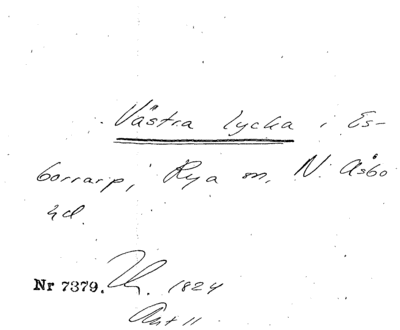 Västra lycka i Es-
borrarp, Rya sn, N. Åsbo
hd.
Nr 7379. Lh. 1824
Akt 11